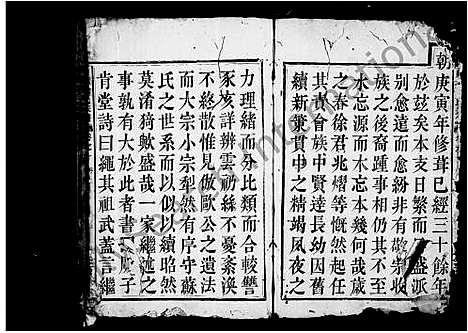 朝庚寅年修葺已經三十餘年
於玆矣本支日繁而盛派
别愈遠而愈紛非有敬宗收
族之後裔踵事相仍其不至
木忘源而木忘本幾何哉歲
之春徐君兆熠等慨然起任
其改會族中賢達長幼因舊
續新兼貫中之精竭夙夜之
力理緒而分比類而合較讐
豕亥詳辨雲礽絲不憂紊渙
不終散惟見倣歐公之遺法
而大宗小宗犁然有序守蘇
氏之世系而以似以續昭然
莫淆猗歟盛哉一家繼述之
事孰有大於此者書子
肯堂詩曰繩其祖武蓋言繼